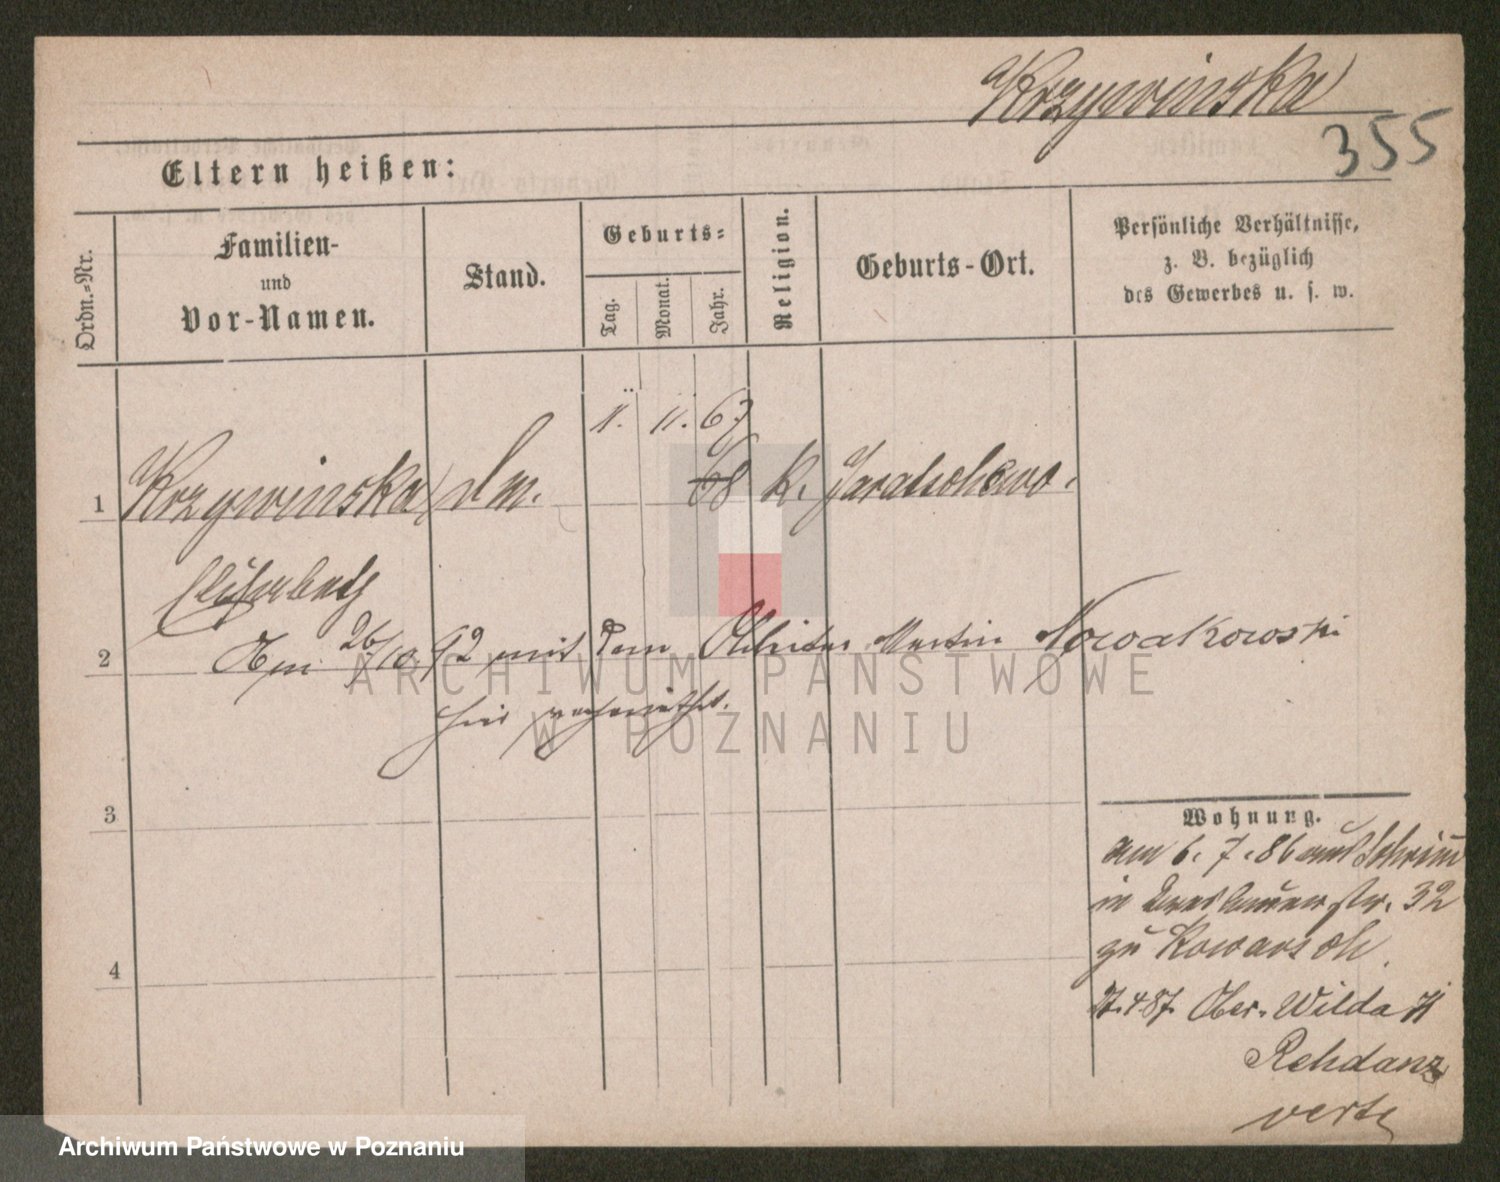 Krzywinska
355
Eltern heißen:
Ordn.-Nr.
Familien-
und
Vor-Namen.
Stand.
Geburts-
Tag.
Monat.
Jahr.
Religion.
Geburts-Ort.
Persönliche Verhältnisse,
z. B. bezüglich
des Gewerbes u. s. w.
11. 11. 67
1 Krzywinska 68 K. Jaratschewo.
Elisabeth
2 26/10 92 mit dem Arbeiter Martin Nowakowski
hier verheirathet.
ARCHIWUM PAŃSTWOWE
W POZNANIU
3
4
Wohnung.
am 6. 7. 86 aus Schrimm
in Breslauer str. 32
zu Kowarsch.
4 87. Ober. Wilda
Rehdanz
verte
Archiwum Państwowe w Poznaniu